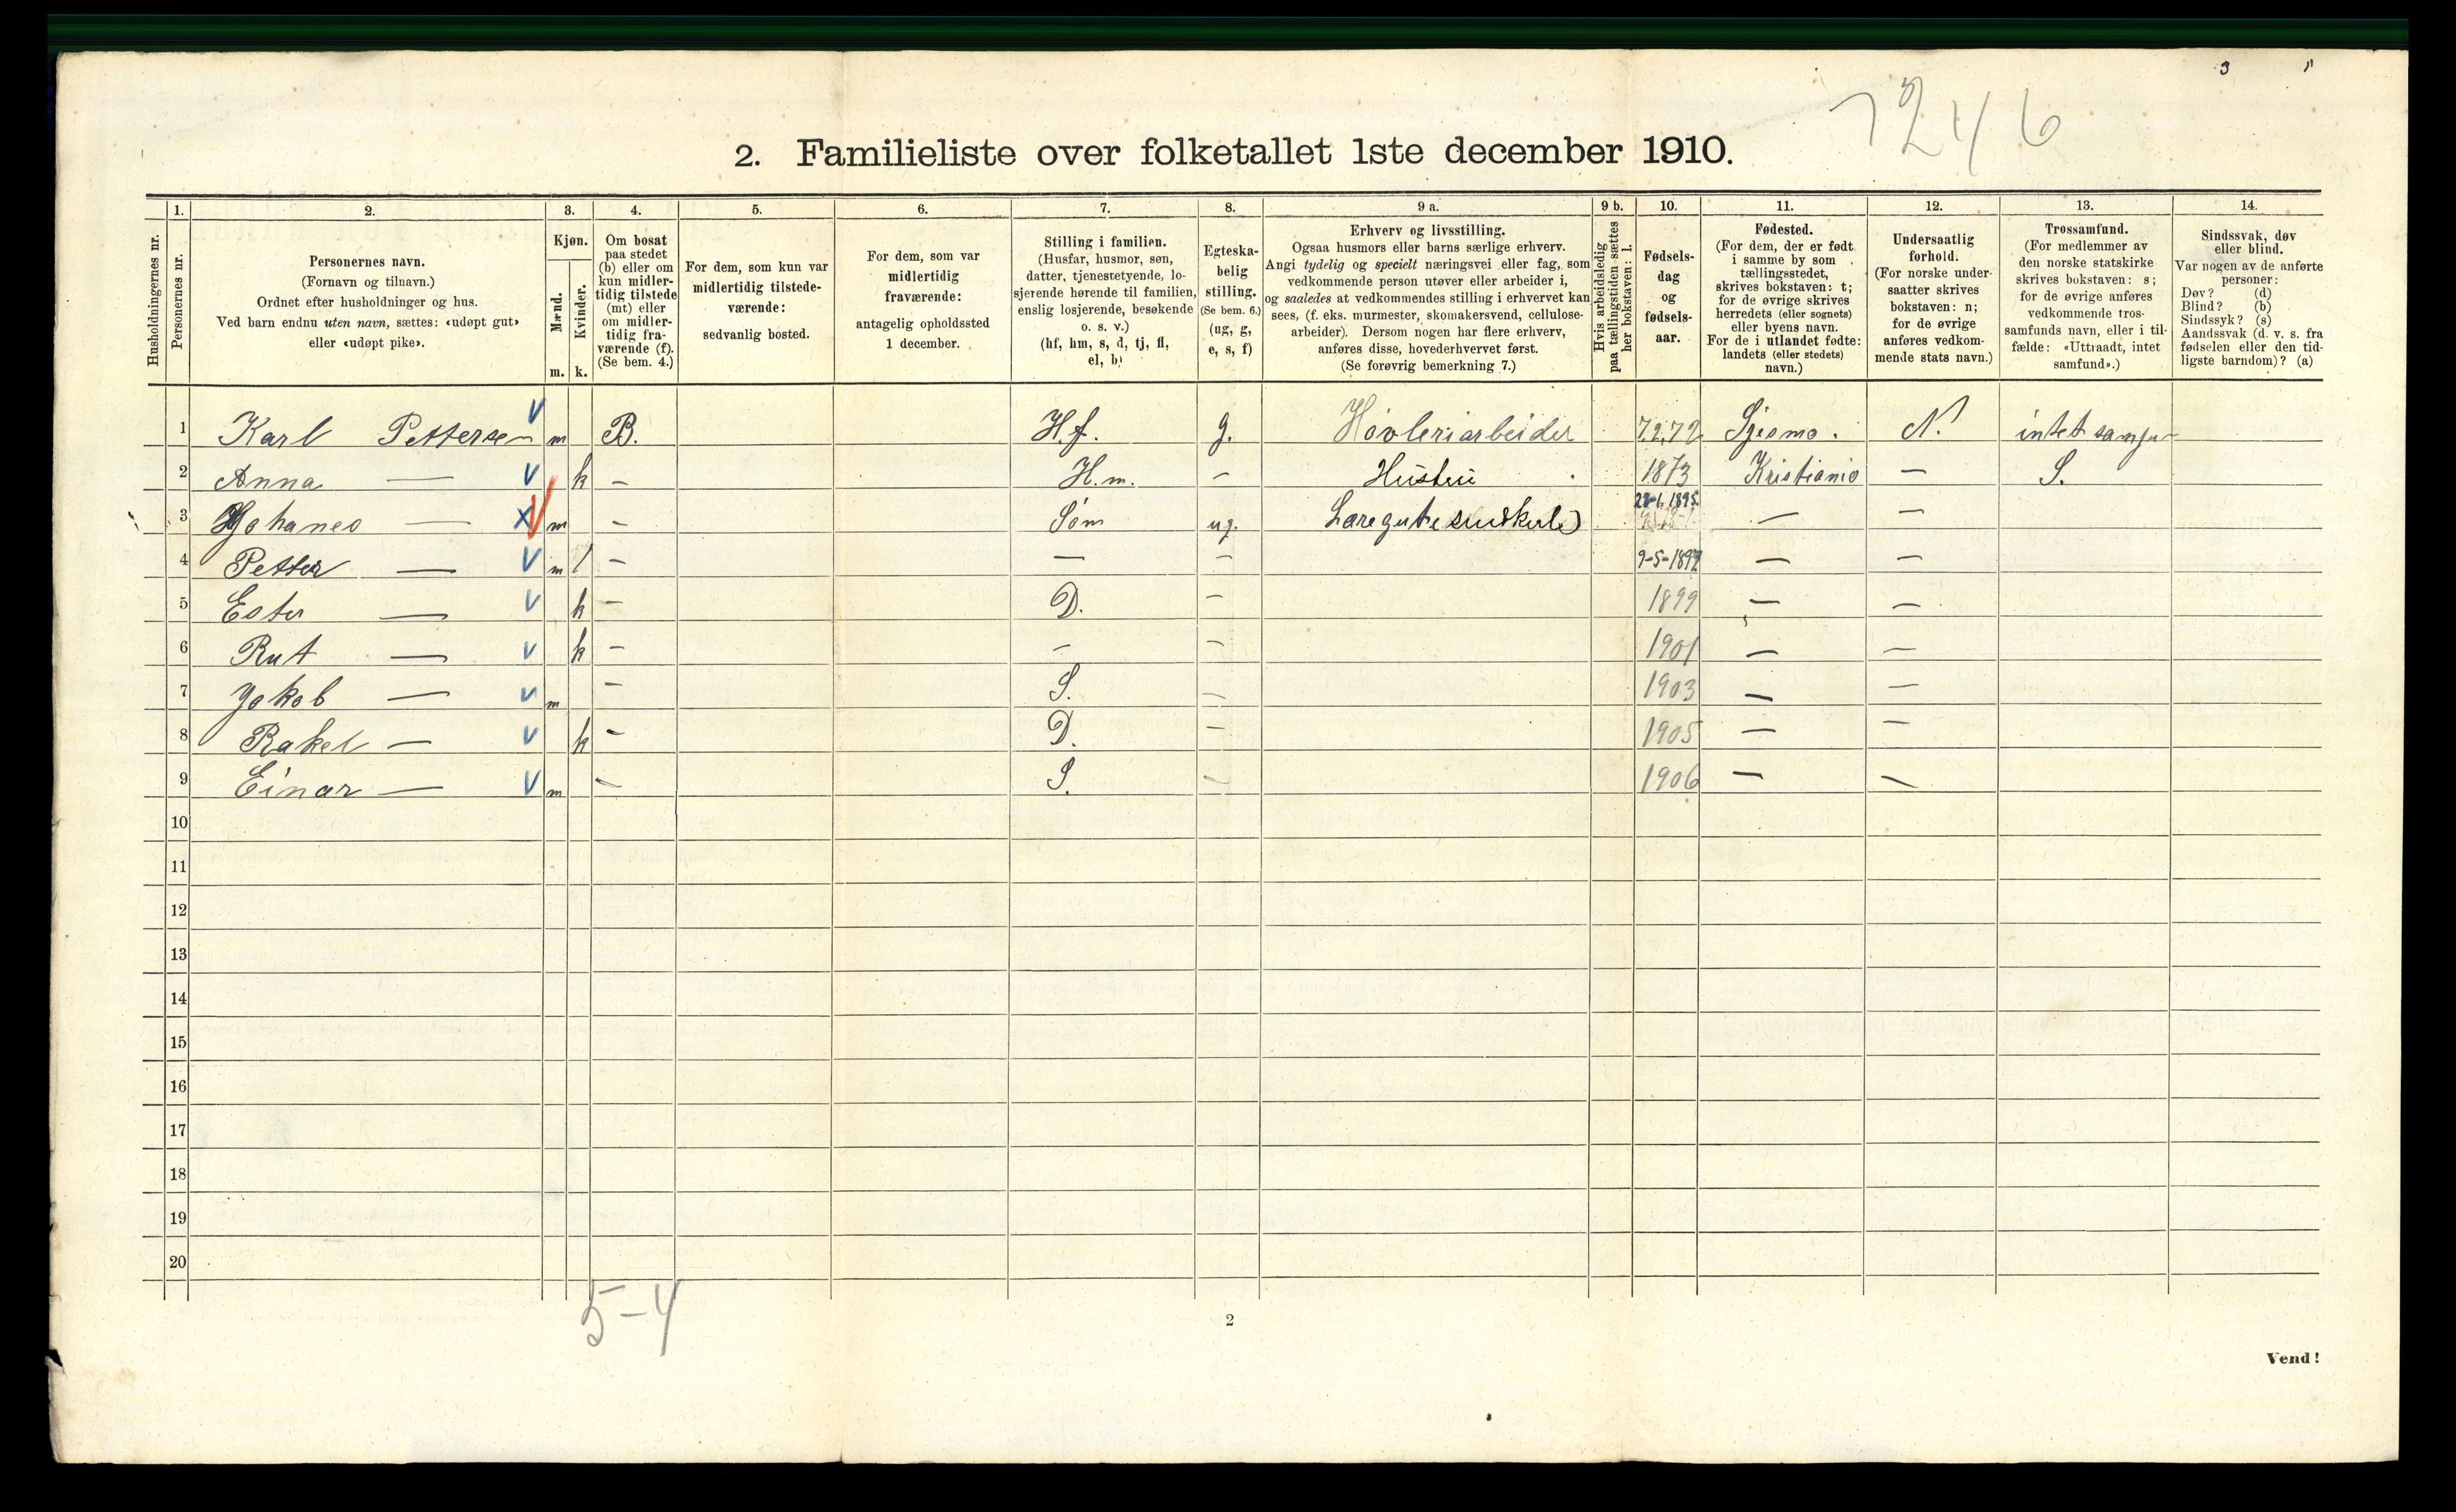 3
7246
2. Familieliste over folketallet 1ste december 1910.
Husholdningernes nr.
1.
Personernes nr.
2.
Personernes navn.
(Fornavn og tilnavn.)
Ordnet efter husholdninger og hus.
Ved barn endnu uten navn, sættes: «udøpt gut»
eller «udøpt pike».
3.
Kjøn.
Mænd.
m.
Kvinder.
k.
4.
Om bosat
paa stedet
(b) eller om
kun midler-
tidig tilstede
(mt) eller
om midler-
tidig fra-
værende (f).
(Se bem. 4.)
5.
For dem, som kun var
midlertidig tilstede-
værende:
sedvanlig bosted.
6.
For dem, som var
midlertidig
fraværende:
antagelig opholdssted
1 december.
7.
Stilling i familien.
(Husfar, husmor, søn,
datter, tjenestetyende, lo-
sjerende hørende til familien,
enslig losjerende, besøkende
o. s. v.)
(hf, hm, s, d, tj, fl,
el, b)
8.
Egteska-
belig
stilling.
(Se bem. 6.)
(ug, g,
e, s, f)
9 a.
Erhverv og livsstilling.
Ogsaa husmors eller barns særlige erhverv.
Angi tydelig og specielt næringsvei eller fag, som
vedkommende person utøver eller arbeider i,
og saaledes at vedkommendes stilling i erhvervet kan
sees, (f. eks. murmester, skomakersvend, cellulose-
arbeider). Dersom nogen har flere erhverv,
anføres disse, hovederhvervet først.
(Se forøvrig bemerkning 7.)
9 b.
Hvis arbeidsledig
paa tællingstiden sættes
her bokstaven: l.
10.
Fødsels-
dag
og
fødsels-
aar.
11.
Fødested.
(For dem, der er født
i samme by som
tællingsstedet,
skrives bokstaven: t;
for de øvrige skrives
herredets (eller sognets)
eller byens navn.
For de i utlandet fødte:
landets (eller stedets)
navn.)
12.
Undersaatlig
forhold.
(For norske under-
saatter skrives
bokstaven: n;
for de øvrige
anføres vedkom-
mende stats navn.)
13.
Trossamfund.
(For medlemmer av
den norske statskirke
skrives bokstaven: s;
for de øvrige anføres
vedkommende tros-
samfunds navn, eller i til-
fælde: «Uttraadt, intet
samfund».)
14.
Sindssvak, døv
eller blind.
Var nogen av de anførte
personer:
Døv? (d)
Blind? (b)
Sindssyk? (s)
Aandssvak (d. v. s. fra
fødselen eller den tid-
ligste barndom)? (a)
1 Karl Pettersen V m B. H.f. g. Høvleriarbeider 7.2.72 N. intet samfu
2 Anna — V k — H.m. — Hustru 1873 Kristiania — S.
3 Johanes — X V m — Søn ug. Læregut 28-1.1895 — —
4 Petter — V m — — — 9-5-1897 — —
5 Ester — V k — D. — 1899 — —
6 Rut — V k — — — 1901 — —
7 Jakob — V m — S. — 1903 — —
8 Rakel — V k — D. — 1905 — —
9 Einar — V m — S. — 1906 — —
10
11
12
13
14
15
16
17
18
19
20
5-4
2
Vend!